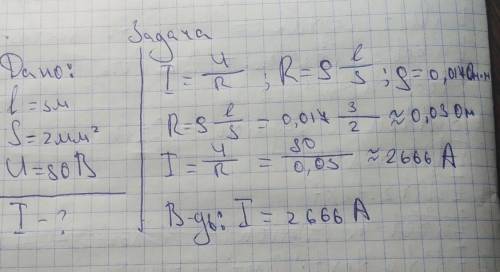 Задача
Дано:
l = 3м
S = 2мм²
U = 80В
I - ?
I = U/R ; R = ρ l/S ; ρ = 0,017Ом·м
R = ρ l/S = 0,017 3/2 ≈ 0,03 Ом
I = U/R = 80/0,03 ≈ 2666 А
В-дь: I = 2666 А